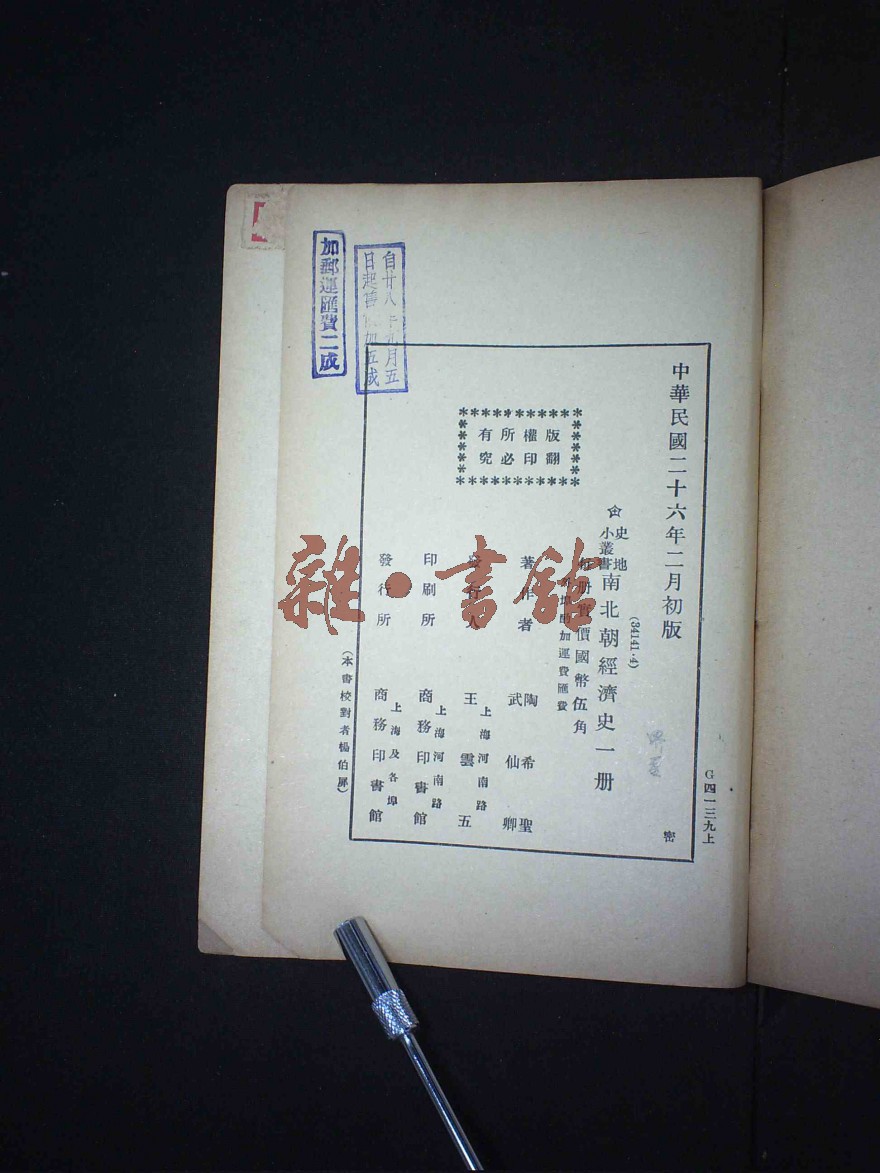 中華民國二十六年二月初版
G四一三九上
密
(34141·4)
史地
小叢書
南北朝經濟史一册
每册實價國幣伍角
外埠酌加運費匯費
版權所有
翻印必究
著作者
陶希聖
武仙卿
發行人
上海河南路
王雲五
印刷所
上海河南路
商務印書館
發行所
上海及各埠
商務印書館
(本書校對者楊伯屏)
自廿八年九月五
日起照價加五成
加郵運匯費二成
雜·書館